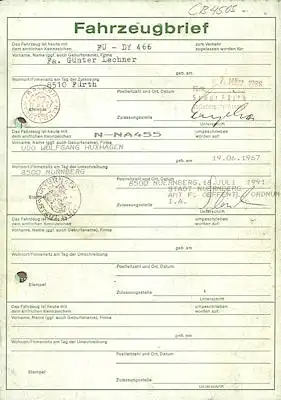 CB4505
Fahrzeugbrief
Das Fahrzeug ist heute mit
dem amtlichen Kennzeichen
FÜ - DY 466
zum Verkehr
zugelassen worden für:
Vorname, Name (ggf. auch Geburtsname), Firma
Fa. Günter Lachner
geb. am:
Wohnort/Firmensitz am Tag der Zulassung
8510 Fürth
Postleitzahl und Ort, Datum
Stadt Fürth
Stempel
Zulassungsstelle:
Unterschrift
Das Fahrzeug ist heute mit
dem amtlichen Kennzeichen
N-NA455
umgeschrieben
worden auf:
Vorname, Name (ggf. auch Geburtsname), Firma
UDO WOLFGANG HUXHAGEN
geb. am:
19.06.1967
Wohnort/Firmensitz am Tag der Umschreibung
8500 NÜRNBERG
Postleitzahl und Ort, Datum
8500 NUERNBERG, 16. JULI 1991
STADT NUERNBERG
AMT F. OEFFENTL. ORDNUNG
I.A.
Stempel
Zulassungsstelle:
Unterschrift
Das Fahrzeug ist heute mit
dem amtlichen Kennzeichen
umgeschrieben
worden auf:
Vorname, Name (ggf. auch Geburtsname), Firma
geb. am:
Wohnort/Firmensitz am Tag der Umschreibung
Postleitzahl und Ort, Datum
Stempel
Zulassungsstelle:
Unterschrift
Das Fahrzeug ist heute mit
dem amtlichen Kennzeichen
umgeschrieben
worden auf:
Vorname, Name (ggf. auch Geburtsname), Firma
geb. am:
Wohnort/Firmensitz am Tag der Umschreibung
Postleitzahl und Ort, Datum
Stempel
Zulassungsstelle:
Unterschrift